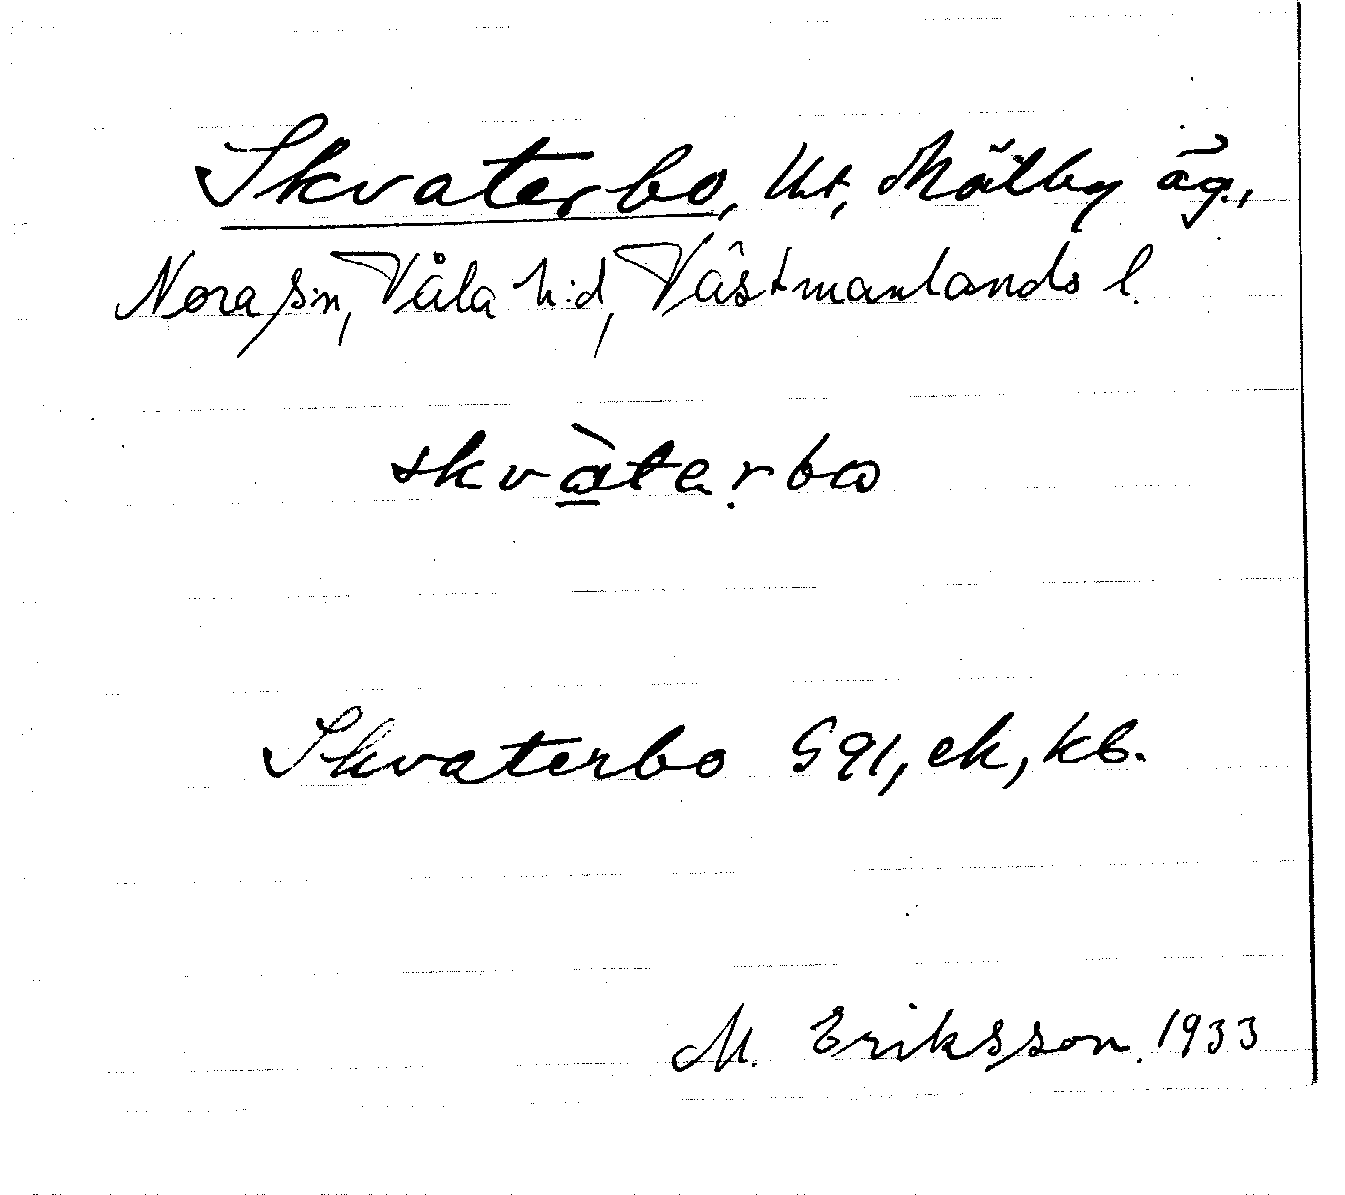 Skvaterbo, Ut, Mälby äg.,
Nora s:n, Våla h:d, Västmanlands l.
skvàterbω
Skvaterbo G 91, ek, kb.
M. Eriksson 1933